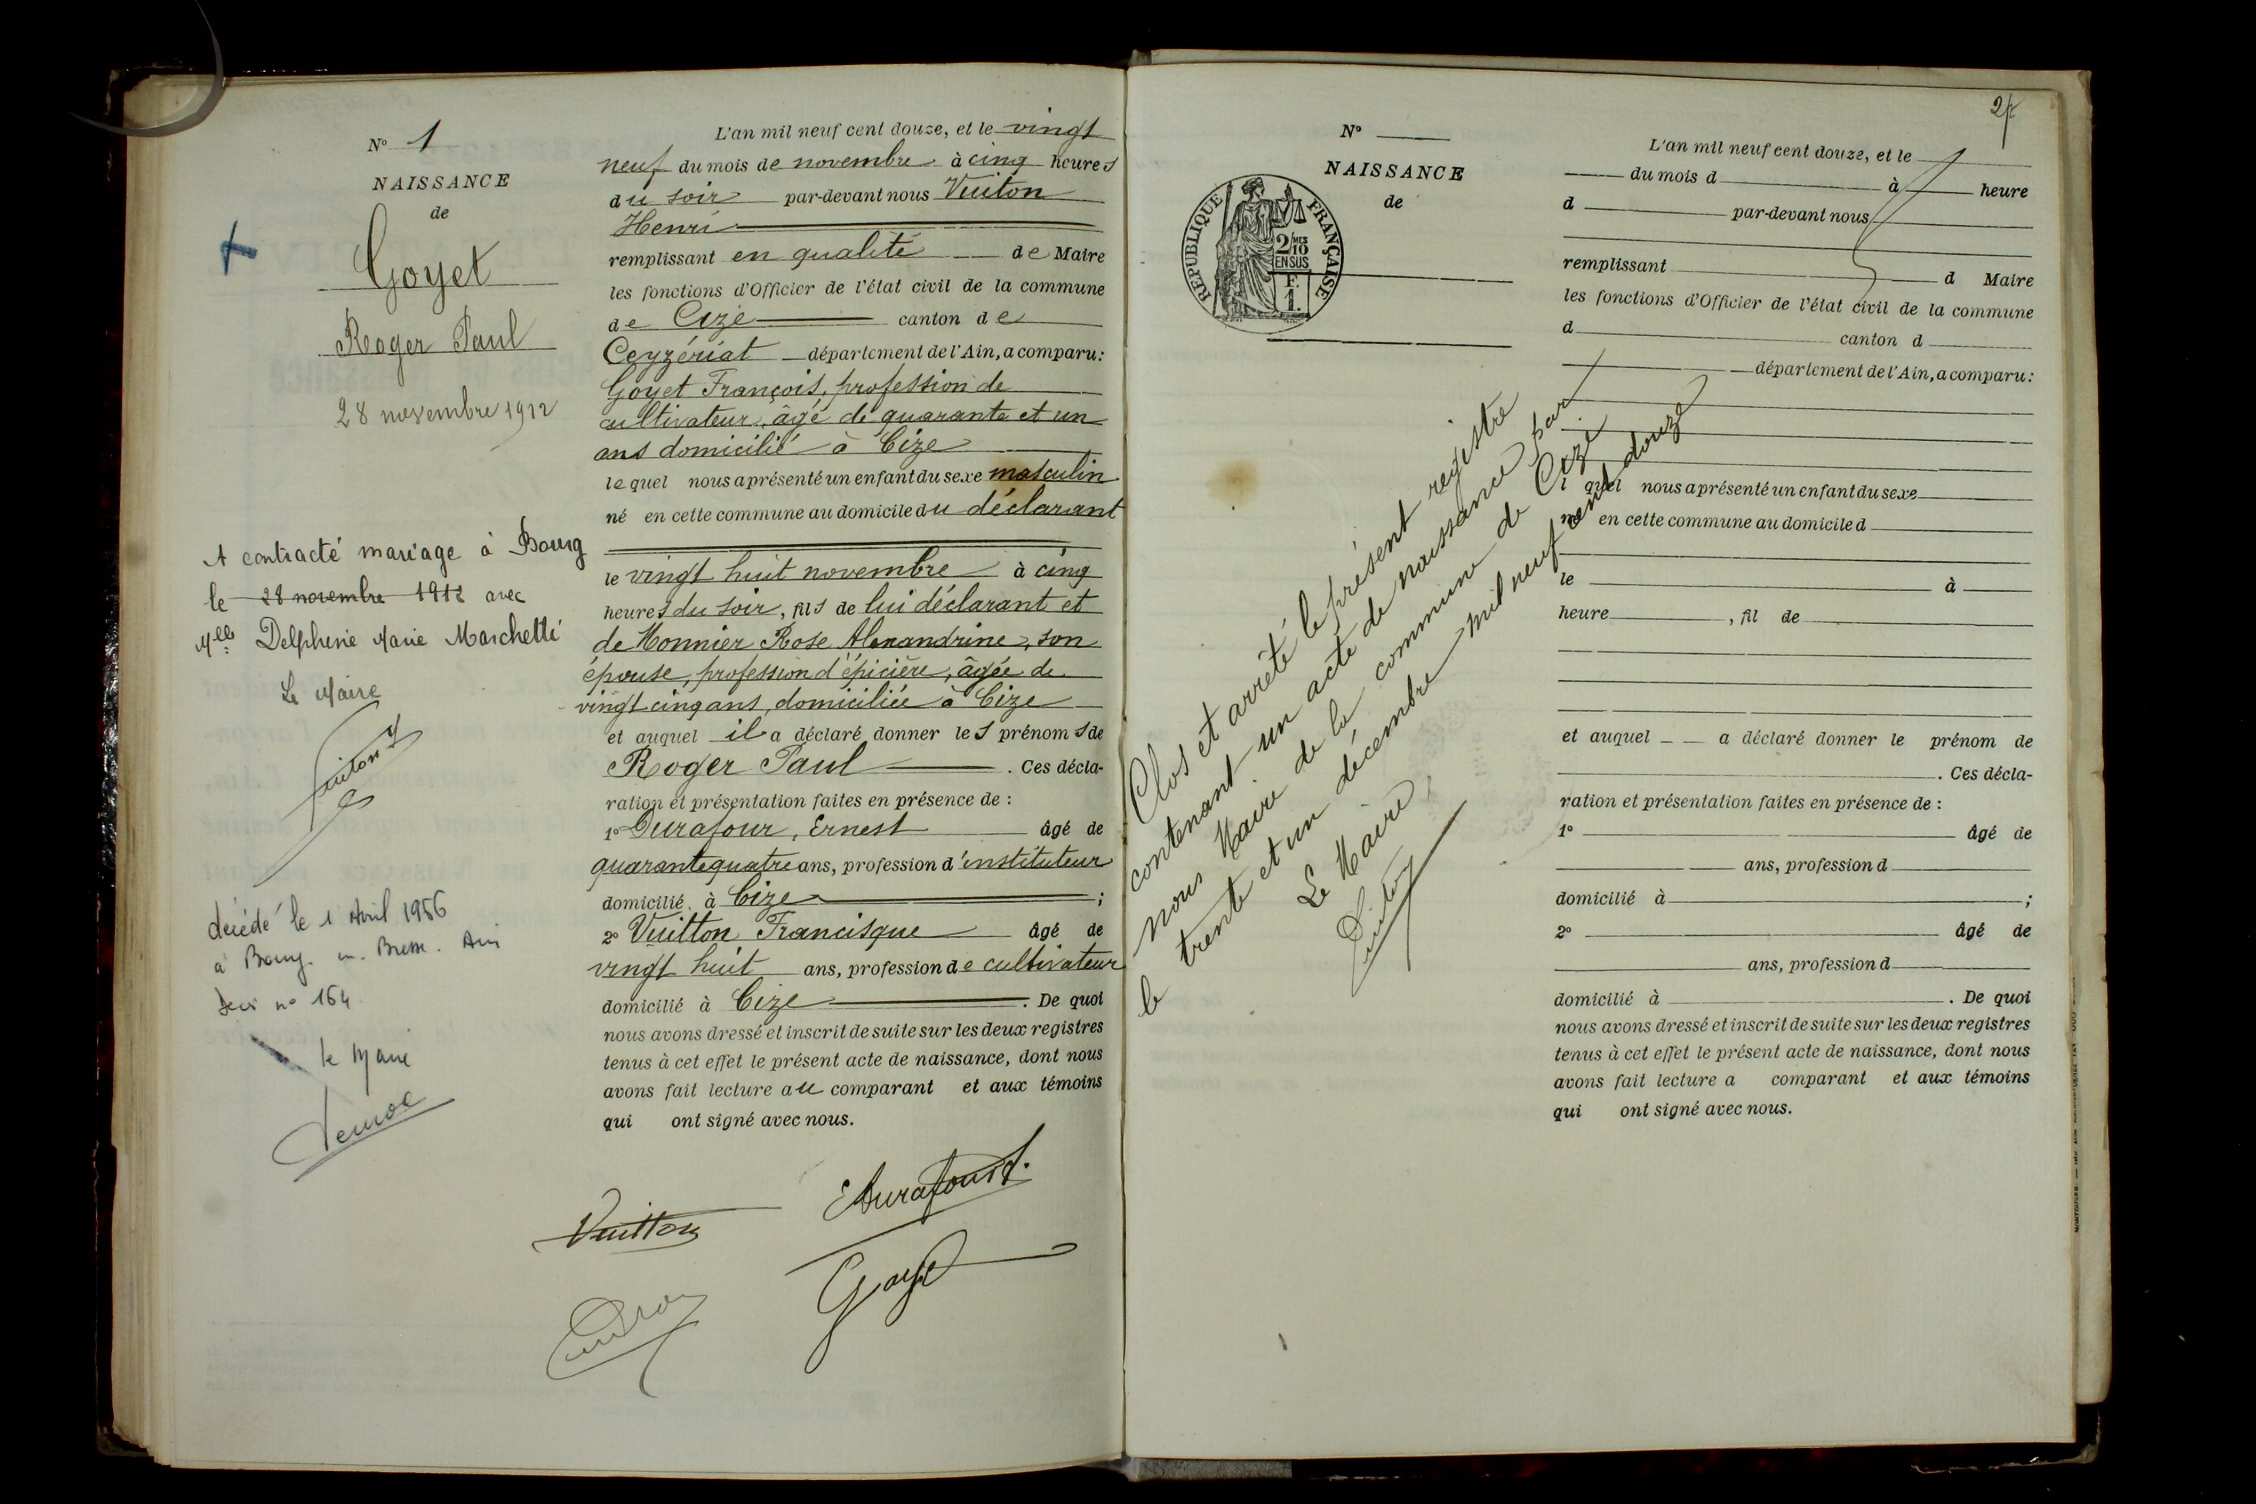 N° 1
NAISSANCE
de
Goyet
Roger Paul
28 novembre 1912
A contracté mariage à Bourg
le 28 novembre 1912 avec
Melle Delphine Marie Marchetti
Le Maire
Vuiton
décédé le 1 Avril 1956
à Bourg en Bresse Ain
n° 164
le Maire
L'an mil neuf cent douze, et le vingt
neuf du mois de novembre à cinq heures
du soir par-devant nous Vuiton
Henri
remplissant en qualité de Maire
les fonctions d'Officier de l'état civil de la commune
de Cize canton de
Ceyzériat département de l'Ain, a comparu:
Goyet François, profession de
cultivateur, âgé de quarante et un
ans domicilié à Cize
lequel nous a présenté un enfant du sexe masculin
né en cette commune au domicile du déclarant
le vingt huit novembre à cinq
heures du soir, fils de lui déclarant et
de Monnier Rose Alexandrine, son
épouse, profession d'épicière, âgée de
vingt cinq ans, domiciliée à Cize
et auquel il a déclaré donner les prénoms de
Roger Paul. Ces décla-
ration et présentation faites en présence de :
1° Durafour, Ernest âgé de
quarante quatre ans, profession d'instituteur
domicilié à Cize ;
2° Vuitton Francisque âgé de
vingt huit ans, profession de cultivateur
domicilié à Cize. De quoi
nous avons dressé et inscrit de suite sur les deux registres
tenus à cet effet le présent acte de naissance, dont nous
avons fait lecture au comparant et aux témoins
qui ont signé avec nous.
EDurafour
Vuitton
Goyet
27
N°
NAISSANCE
de
RÉPUBLIQUE FRANÇAISE
2/MES
10
EN SUS
F.
1.
L'an mil neuf cent douze, et le
du mois d à heure
d par-devant nous
remplissant d Maire
les fonctions d'Officier de l'état civil de la commune
d canton d
département de l'Ain, a comparu:
l quel nous a présenté un enfant du sexe
né en cette commune au domicile d
le à
heure , fil de
et auquel a déclaré donner le prénom de
. Ces décla-
ration et présentation faites en présence de :
1° âgé de
ans, profession d
domicilié à ;
2° âgé de
ans, profession d
domicilié à . De quoi
nous avons dressé et inscrit de suite sur les deux registres
tenus à cet effet le présent acte de naissance, dont nous
avons fait lecture a comparant et aux témoins
qui ont signé avec nous.
Clos et arrêté le présent registre
contenant un acte de naissance par
nous Maire de la commune de Cize
le trente et un décembre mil neuf cent douze
Le Maire,
Vuiton